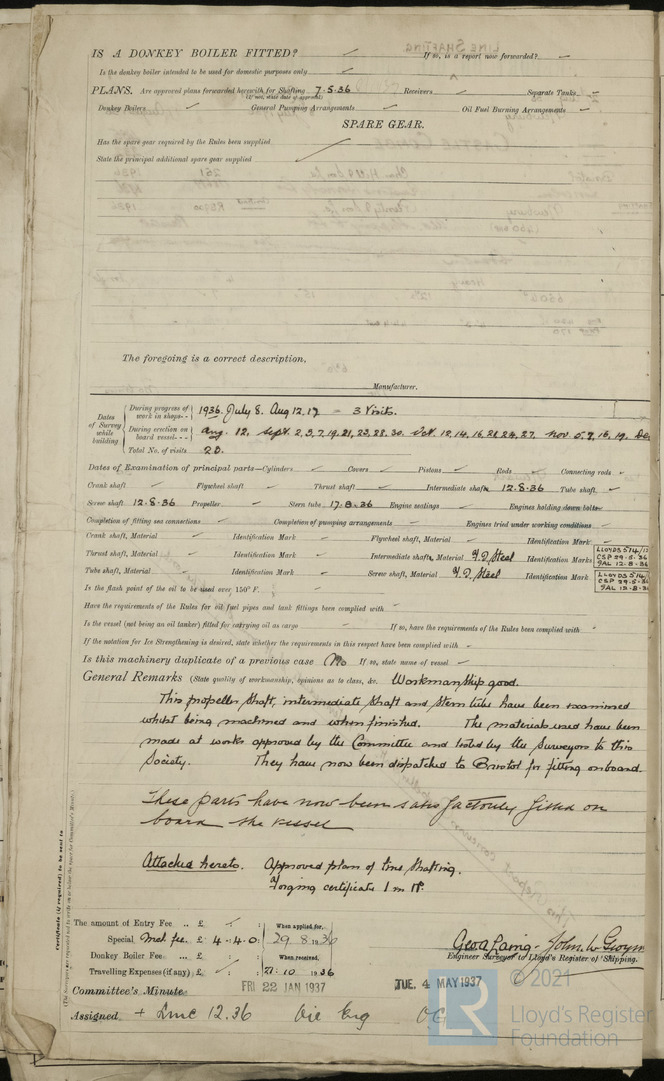 LINE SHAFTING
IS A DONKEY BOILER FITTED? If so, is a report now forwarded?
Is the donkey boiler intended to be used for domestic purposes only
PLANS. Are approved plans forwarded herewith for Shafting 7.5.36 Receivers Separate Tanks
(If not, state date of approval)
Donkey Boilers General Pumping Arrangements Oil Fuel Burning Arrangements
SPARE GEAR.
Has the spare gear required by the Rules been supplied
State the principal additional spare gear supplied
The foregoing is a correct description,
Manufacturer.
Dates of Survey while building
During progress of work in shops-- 1936. July 8. Aug 12.17 = 3 Visits.
During erection on board vessel--- Aug. 12, Sept. 2,3,7,19,21,23,28,30. Oct. 12,14,16,21,24,27. Nov 5,9,16,19. De
Total No. of visits 20.
Dates of Examination of principal parts—Cylinders Covers Pistons Rods Connecting rods
Crank shaft Flywheel shaft Thrust shaft Intermediate shafts 12.8.36 Tube shaft
Screw shaft 12.8.36 Propeller Stern tube 17.8.36 Engine seatings Engines holding down bolts
Completion of fitting sea connections Completion of pumping arrangements Engines tried under working conditions
Crank shaft, Material Identification Mark Flywheel shaft, Material Identification Mark
Thrust shaft, Material Identification Mark Intermediate shafts, Material I.D Steel Identification Marks
LLOYDS 5/4/
CSP 29.5.36
GAL 12.8.36
Tube shaft, Material Identification Mark Screw shaft, Material I.D. Steel Identification Mark
LLOYDS 5/4/
CSP 29.5.36
GAL 12.8.3
Is the flash point of the oil to be used over 150° F.
Have the requirements of the Rules for oil fuel pipes and tank fittings been complied with
Is the vessel (not being an oil tanker) fitted for carrying oil as cargo If so, have the requirements of the Rules been complied with
If the notation for Ice Strengthening is desired, state whether the requirements in this respect have been complied with
Is this machinery duplicate of a previous case No If so, state name of vessel
General Remarks (State quality of workmanship, opinions as to class, &c. Workmanship good.
This propeller shaft, intermediate shaft and stern tube have been examined
whilst being machined and when finished. The materials used have been
made at works approved by the Committee and tested by the Surveyors to this
Society. They have now been dispatched to Bristol for fitting onboard.
These parts have now been satisfactorily fitted on
board the vessel
Attached hereto. Approved plan of line shafting.
Forging certificate 1 in No.
Certificate (if required) to be sent to
(The Surveyors are requested not to write on or below the space for Committee's Minute.)
The amount of Entry Fee .. £ : :
Special Met. fee. £ 4 . 4 . 0 :
Donkey Boiler Fee ... £ : :
Travelling Expenses (if any) £ : :
When applied for,
29. 8. 1936
When received,
27. 10 1936
Geo A Laing - John W Gwynn
Engineer Surveyor to Lloyd's Register of Shipping.
Committee's Minute FRI 22 JAN 1937 TUE. 4 MAY 1937
Assigned + Lmc 12.36 Oil Eng OG
© 2021
LR
Lloyd's Register
Foundation